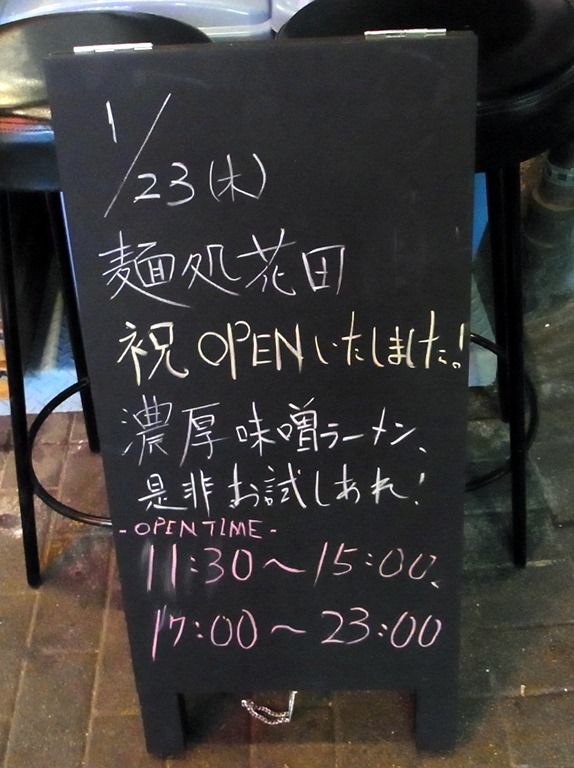 1/23(木)
麺処花田
祝OPENいたしました!
濃厚味噌ラーメン、
是非お試しあれ!
-OPEN TIME-
11:30〜15:00、
17:00〜23:00